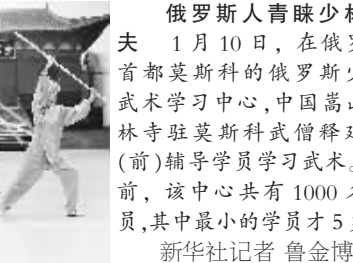 俄罗斯人青睐少
夫 1月10日，在俄
首都莫斯科的俄罗斯
武术学习中心，中国嵩
林寺驻莫斯科武僧释
(前)辅导学员学习武术。
前，该中心共有1000
员，其中最小的学员才5
新华社记者 鲁金博